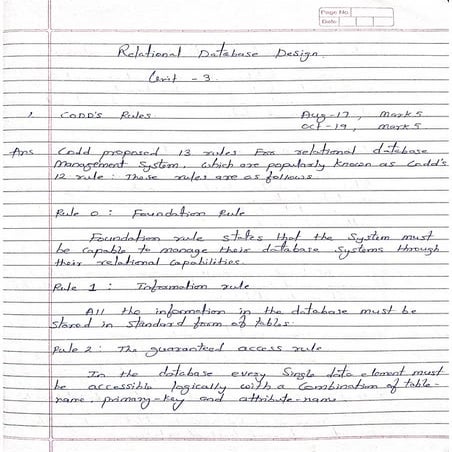 Page No.
Date:
Relational Database Design.
Unit - 3
1. CODD's Rules Aug-17, Mark 5
Oct-19, Mark 5
Ans Codd proposed 13 rules for relational database
Management System, which are popularly known as Codd's
12 rule: These rules are as follows
Rule 0 : Foundation Rule
Foundation rule states that the System must
be capable to manage their database Systems through
their relational capabilities.
Rule 1 : Information rule
All the information in the database must be
stored in standard form of tables.
Rule 2 : The guaranteed access rule
In the database every Single data element must
be accessible logically with a Combination of table-
name, primary-key and attribute-name.